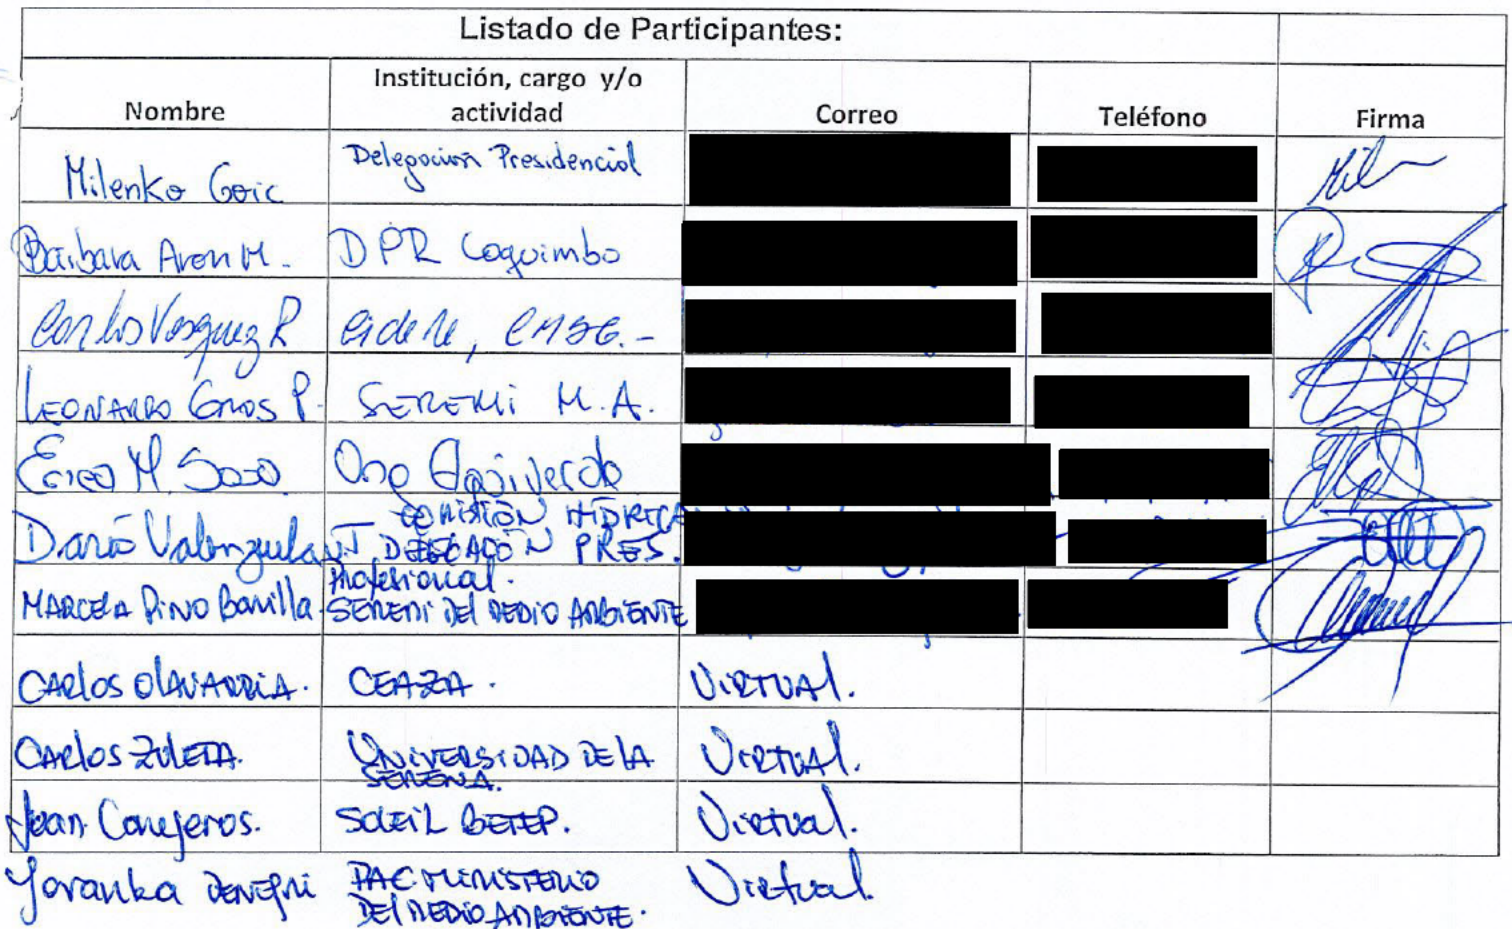 Listado de Participantes:
Nombre Institución, cargo y/o actividad Correo Teléfono Firma
Milenko Goic Delegación Presidencial
Bárbara Aren M. DPR Coquimbo
Carlos Vasquez R
LEONARDO Gros P. SEREMI M.A.
M. Sozo
Darío Valenzuela COMISIÓN HÍDRICA PRES.
MARCELA PINO Bonilla Profesional. SEREMI DEL MEDIO AMBIENTE
CARLOS OLAVARRIA. CEAZA. VIRTUAL.
CARLOS ZULETA. UNIVERSIDAD DE LA SERENA. VIRTUAL.
Jean Conejeros. Virtual.
Yovanka DENEGRI PAC MINISTERIO DEL MEDIO AMBIENTE. Virtual.